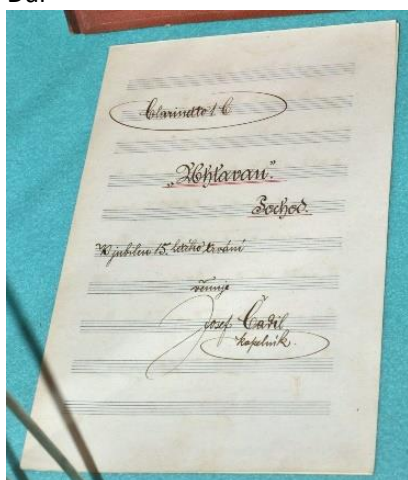 Clarinetto 1. C
„Úhlavan".
Pochod.
K jubileu 15. letého trvání
věnuje
Josef Čadil,
kapelník.